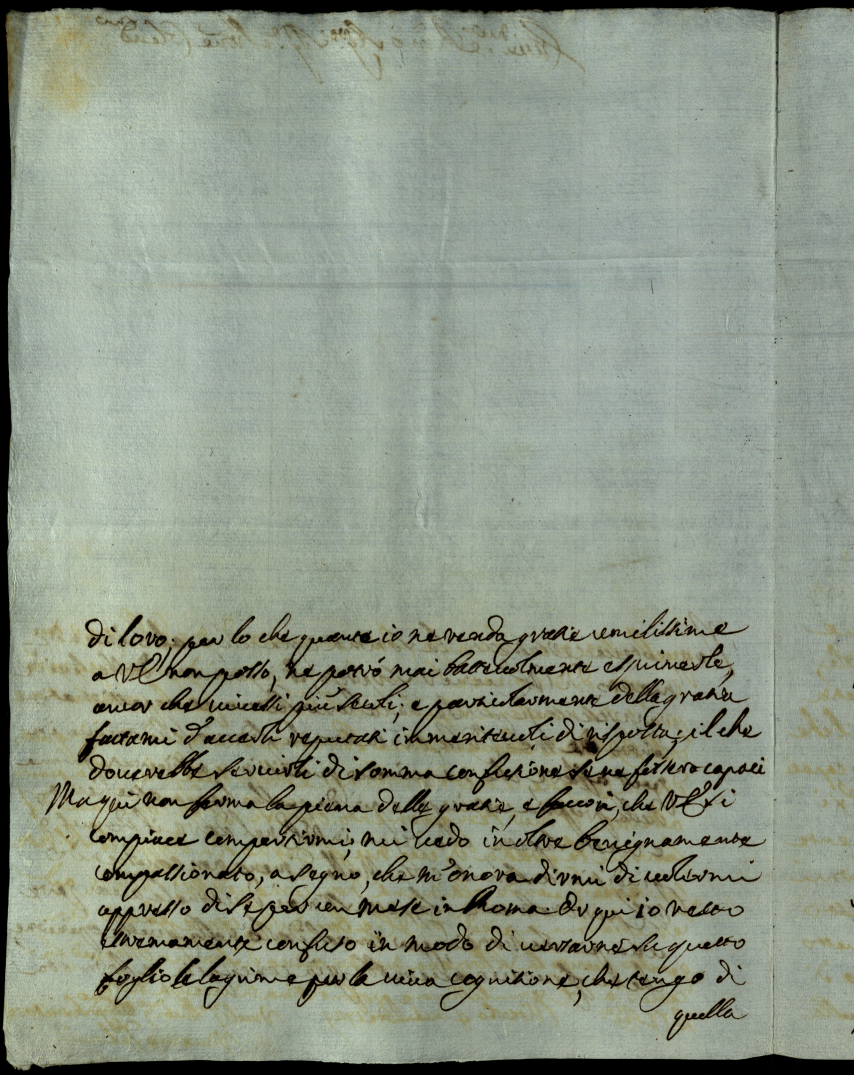 di loro; per lo che quante io ne renda grazie umilissime
a VE non posso, ne potrò mai bastevolmente esprimerle,
ancor che vivessi più secoli; e particolarmente della grazia
fattami d'averli reputati immeritevoli di risposta; il che
doverebbe servirli di somma confusione se ne fossero capaci
Ma qui non ferma la piena delle grazie, e favori, che VE si
compiace compartirmi; mi vedo in oltre benignamente
compassionato, a segno, che m'onora dirmi di vedermi
appresso di se per un mese in Roma. Or qui io resto
estremamente confuso in modo di versarne su questo
foglio le lagrime per la viva cognizione, che tengo di
quella